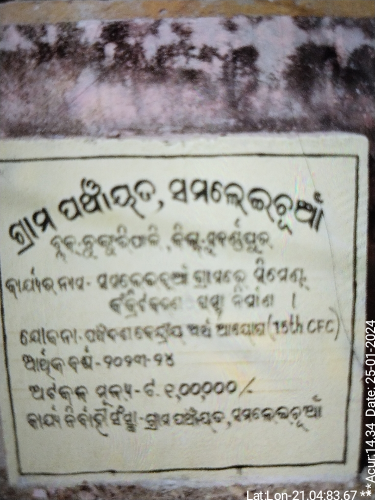 ଗ୍ରାମ ପଞ୍ଚାୟତ, ସମଲେଇଚୂଆଁ
ବ୍ଲକ-ଡୁଙ୍ଗୁରିପାଲି, ଜିଲ୍ଲା-ସୁବର୍ଣ୍ଣପୁର
କାର୍ଯ୍ୟର ନାମ- ସମଲେଇଚୂଆଁ ଗ୍ରାମରେ ସିମେଣ୍ଟ
କଂକ୍ରିଟକରଣ ରାସ୍ତା ନିର୍ମାଣ ।
ଯୋଜନା-ପଞ୍ଚଦଶ କେନ୍ଦ୍ରୀୟ ଅର୍ଥ ଆୟୋଗ (15th CFC)
ଆର୍ଥିକ ବର୍ଷ-୨୦୨୩-୨୪
ଅଟକଳ ମୂଲ୍ୟ- ଟ. ୧,୦୦,୦୦୦/-
କାର୍ଯ୍ୟ ନିର୍ବାହୀ ସଂସ୍ଥା-ଗ୍ରାମ ପଞ୍ଚାୟତ, ସମଲେଇଚୂଆଁ
Lat:Lon-21.04:83.67 **Acur:14.34 Date: 25-01-2024